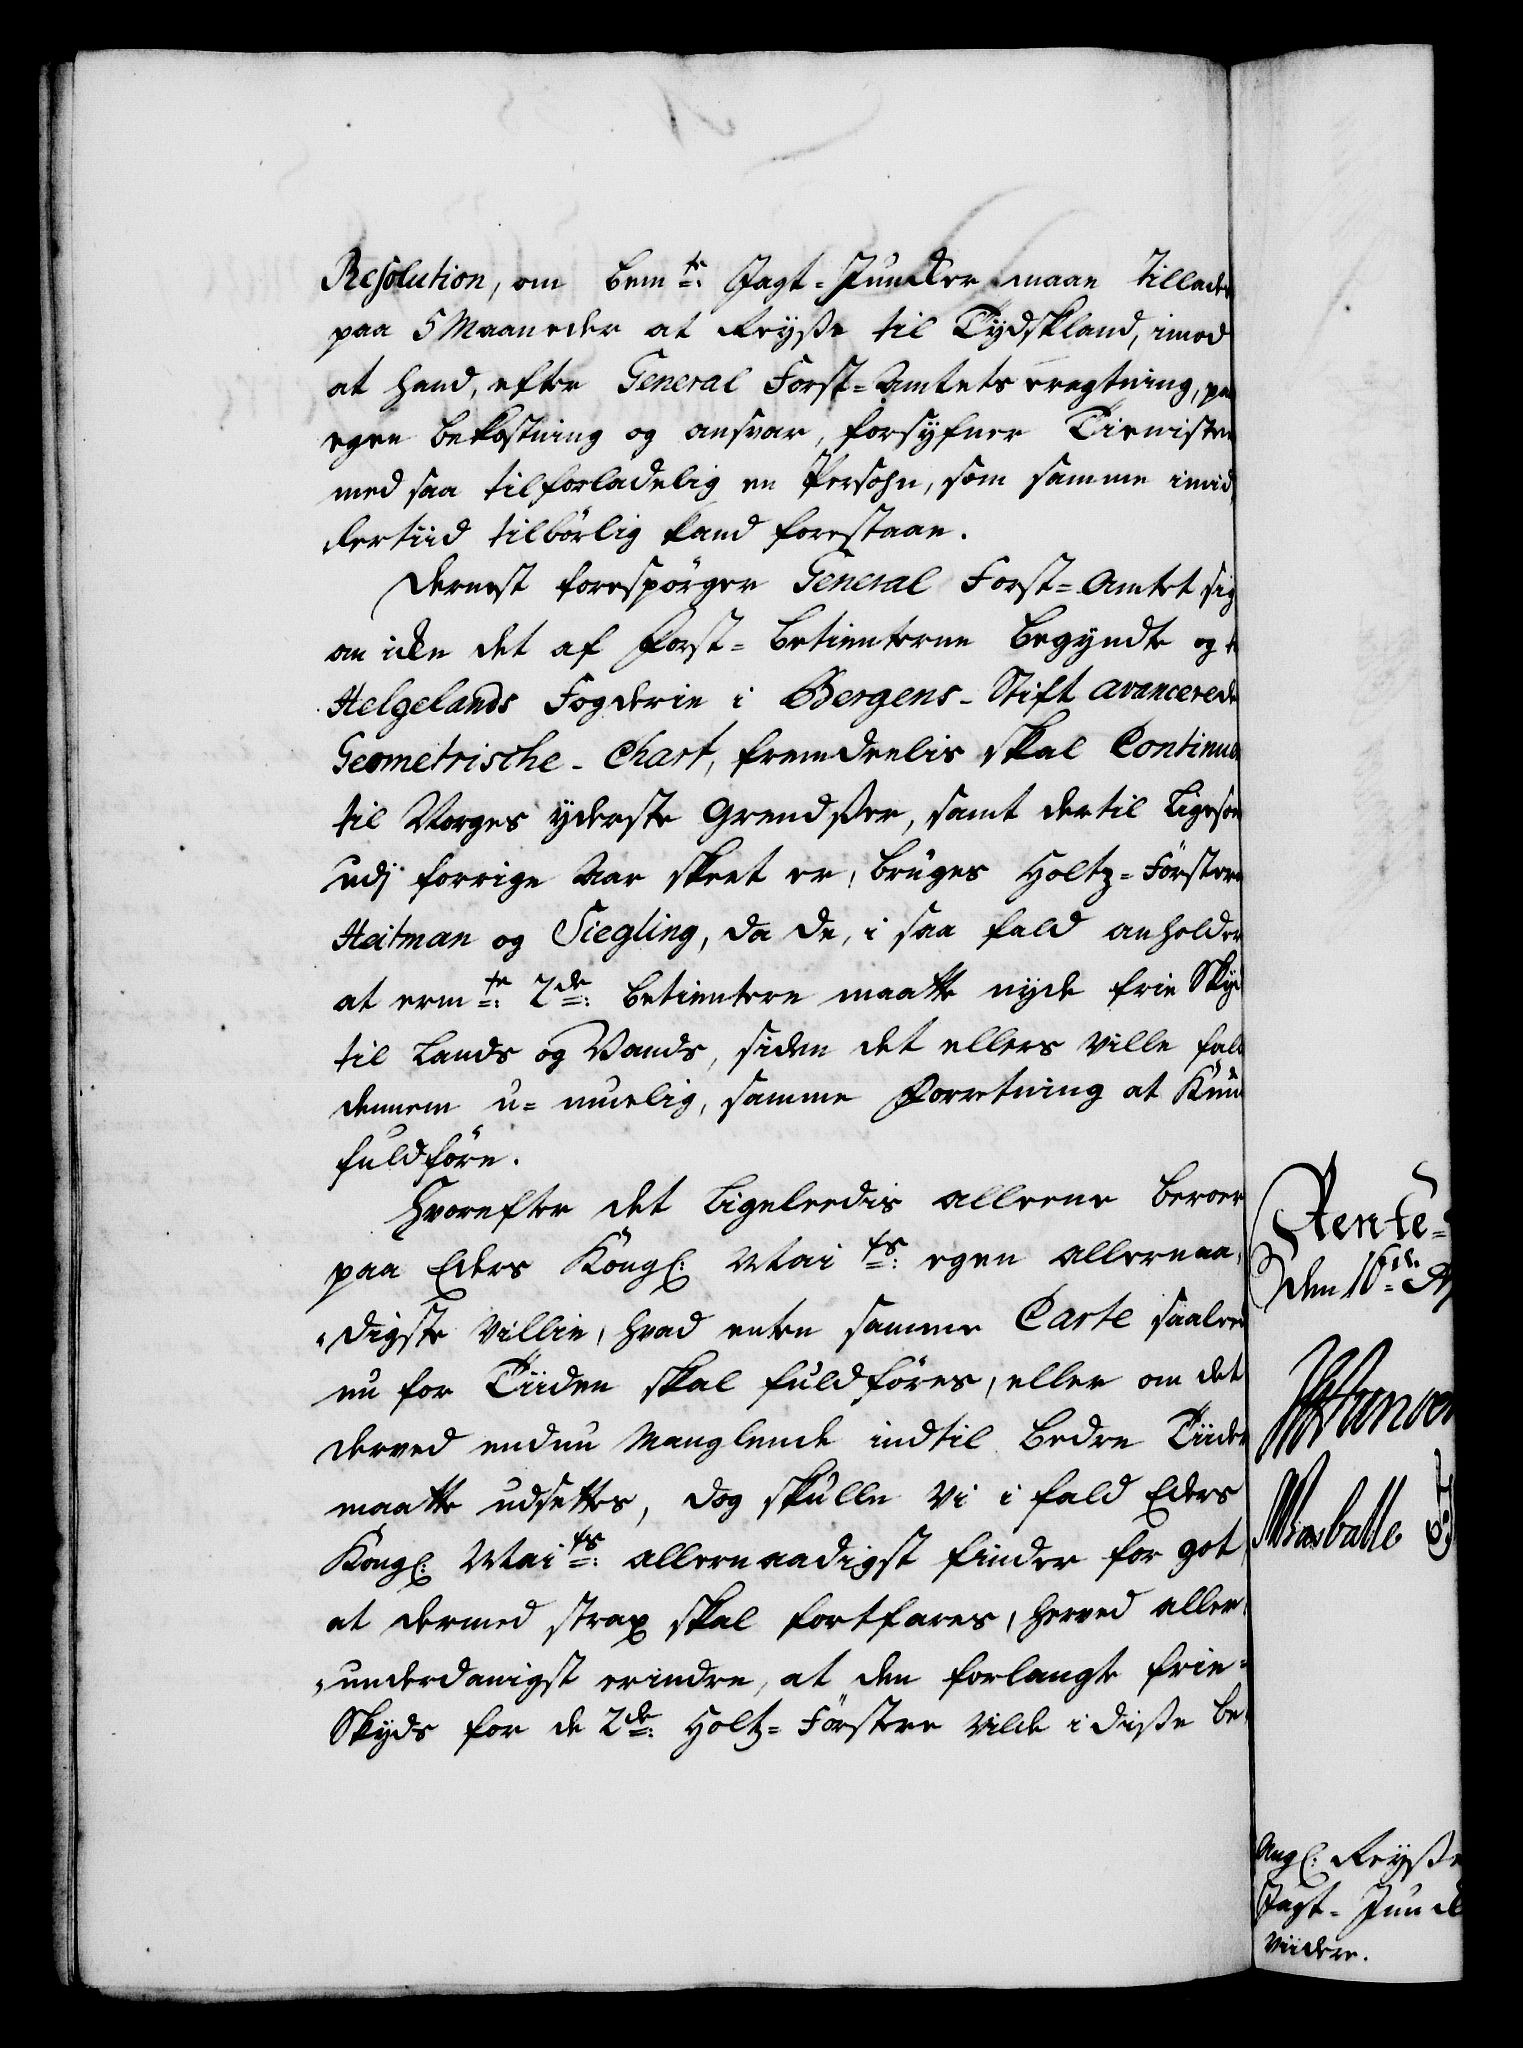 Resolution, om bem<sup>te</sup>: Jagt-Juncker maae tillades
paa 5 Maaneder at Reyse til Tydskland, imod
at hand, efter General Forst-Amtets eragtning, paa
egen bekostning og ansvar, forsyfner Tienisten
med saa tilforladelig en Persohn, som samme imid
lertiid tilbörlig kand forestaae.
Dernest forespörger General Forst-Amtet sig
om icke det af Forst-Betienterne begyndte og t
Helgelands Fogderie i Bergens-Stift avancerede
Geometrische-Chart, fremdeelis skal Continue
til Norges yderste Grendsser, samt dertil Ligesom
udj forrige Aar skeet er, bruges Holtz-Förstere
Heitman og Siegling, da de, i saa fald anholder
at erm<sup>te</sup>: 2<sup>de</sup>: betientere maatte nyde frie Sky
til Lands og Vands, siden det ellers ville fal
dennem u-muelig, samme Forretning at Kun
fuldföre.
Hvorefter det Ligeleedis alleene beroer
paa Eders Kongl: Mai<sup>ts</sup>: egen allernaa,
„digste Villie, hvad enten samme Carte saalee
nu for Tiiden skal fuldföres, eller om det
derved endnu Manglende indtil bedre Tiider
maatte udsettes, dog skulle Vi i fald Eders
Kongl: Mai<sup>ts</sup>: allernaadigst finder for got
at dermed strax skal fortfares, herved aller,
„underdanigst erindre, at den forlangte frie-
Skyds for de 2<sup>de</sup>: Holtz-Förstere vilde i disse be-
Rente-
den 16<sup>de</sup>
Angl: Reysse
Jagt-Junck
viidere.